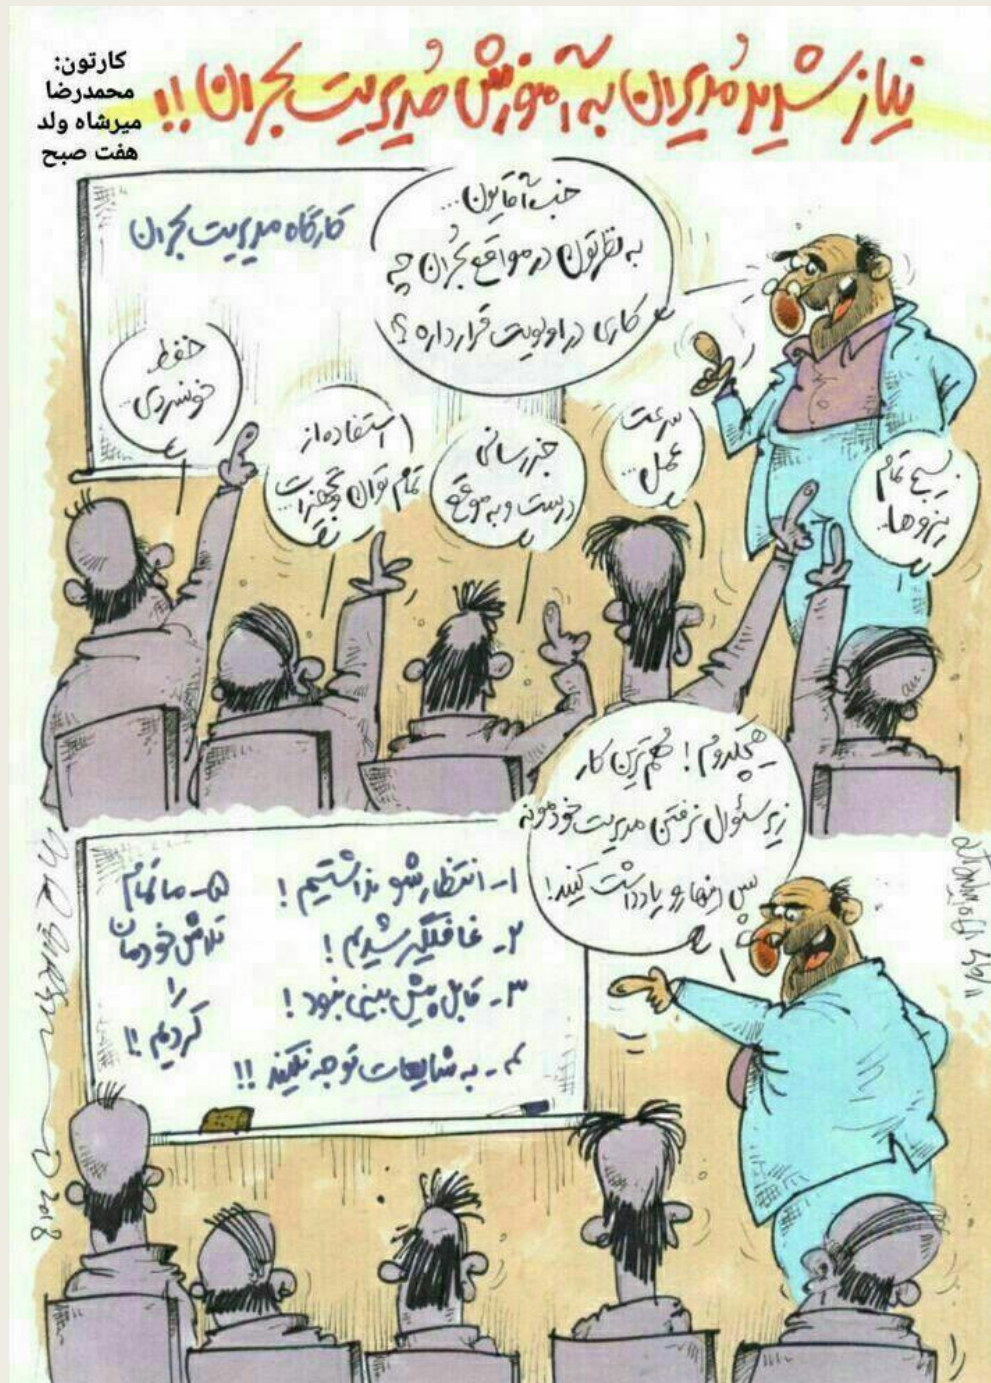 کارتون:
محمدرضا
میرشاه ولد
هفت صبح
نیاز شدید مُدیران به آموزش مُدیریت بحران !!
کارگاه مدیریت بحران
خب آقایون...
به نظرتون در مواقع بُحران چه
کاری در اولویت قرار داره ؟
حفظ
خونسردی...
استفاده از
تمام توان و تجهیزات...
خبررسانی
درست و به موقع
سرعت
عمل...
بسیج تمام
نیروها...
هیچکدوم ! مُهم ترین کار
زیر سئوال نرفتن مدیریت خودمونه
پس اینها رو یادداشت کنید!
۱- انتظارشو نداشتیم !
۲- غافلگیر شدیم !
۳- قابل پیش بینی نبود !
۴- به شایعات توجه نکنید !!
۵- ما تمام
تلاش خودمان
را
کردیم !!
2018